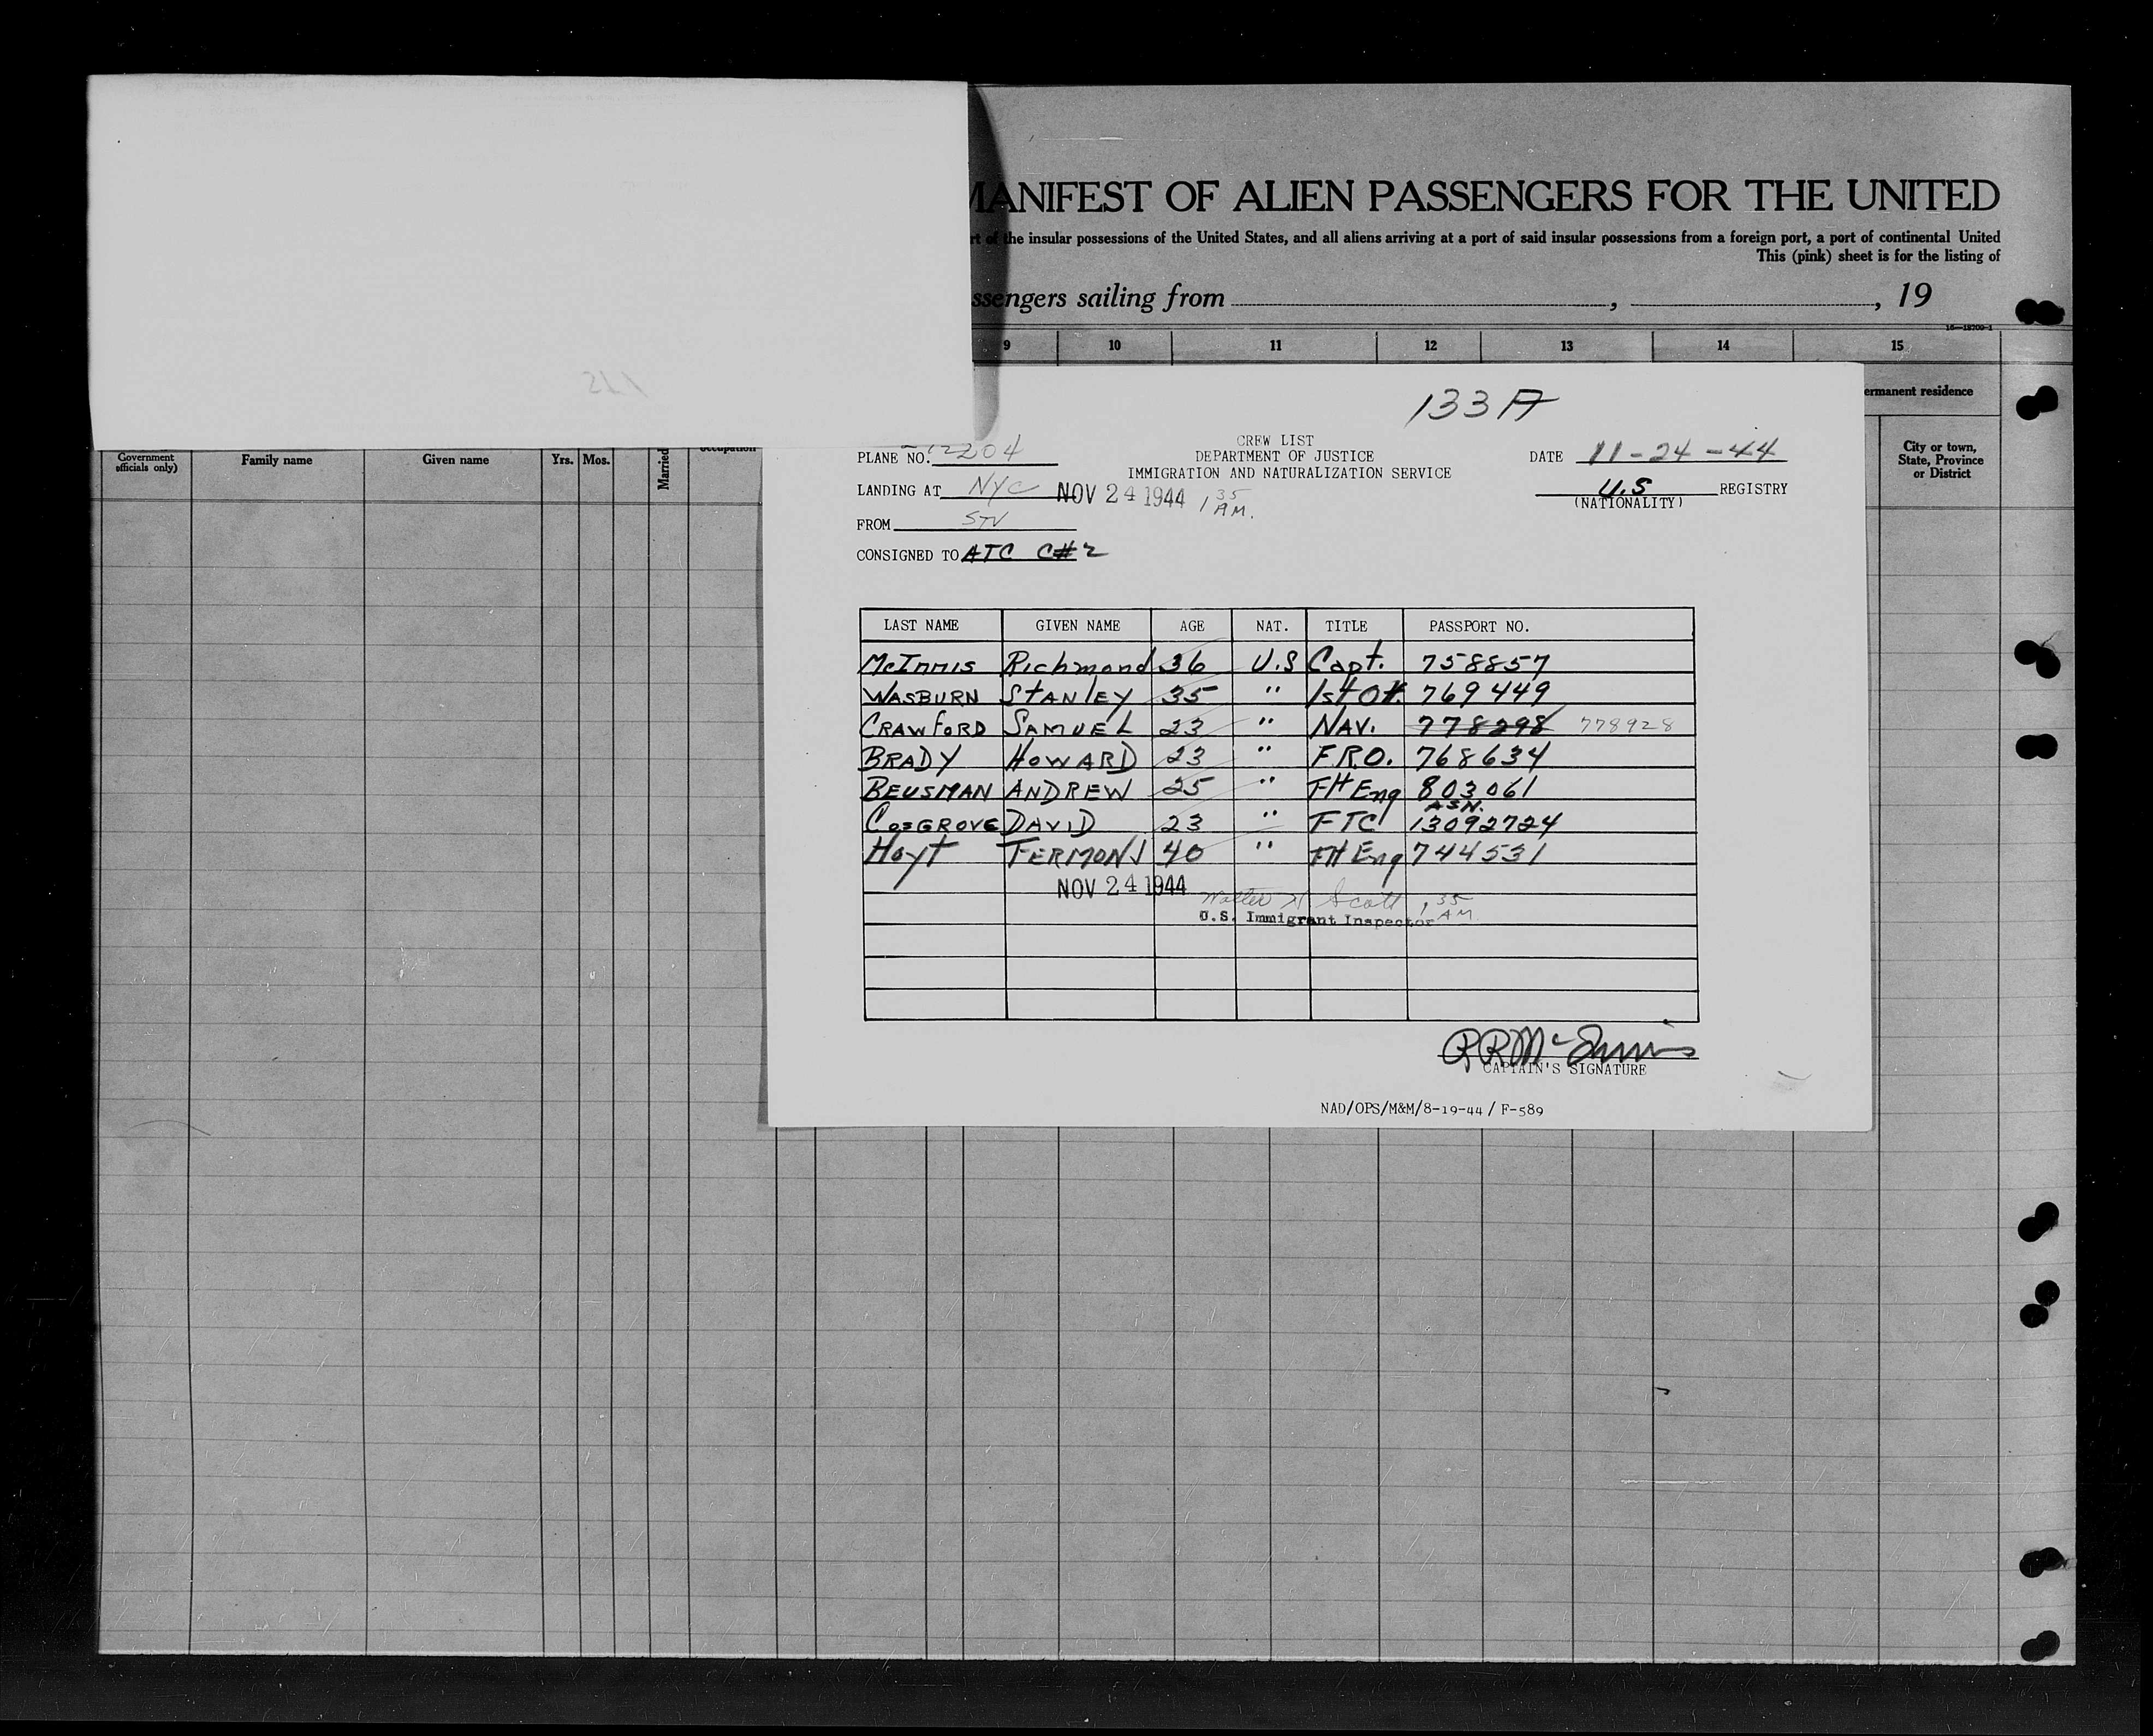 MANIFEST OF ALIEN PASSENGERS FOR THE UNITED
rt of the insular possessions of the United States, and all aliens arriving at a port of said insular possessions from a foreign port, a port of continental United
This (pink) sheet is for the listing of
ssengers sailing from , , 19
16—18709-1
9 10 11 12 13 14 15
ermanent residence
Government officials only) Family name Given name Yrs. Mos. Married occupation
City or town, State, Province or District
133A
CREW LIST
PLANE NO. 72204 DEPARTMENT OF JUSTICE DATE 11-24-44
IMMIGRATION AND NATURALIZATION SERVICE
LANDING AT NYC NOV 24 1944 1 35 AM. U.S REGISTRY
(NATIONALITY)
FROM STV
CONSIGNED TO ATC C#2
LAST NAME GIVEN NAME AGE NAT. TITLE PASSPORT NO.
McInnis Richmond 36 U.S Capt. 758857
WASBURN STANLEY 35 " 1st Of. 769449
CRAWFORD SAMUEL 23 " NAV. 778298 778928
BRADY HOWARD 23 " F.R.O. 768634
BEUSMAN ANDREW 25 " FH Eng 803061
ASN.
COSGROVE DAVID 23 " FTC 13092724
Hoyt 40 " FH Eng 744531
NOV 24 1944 Walter H Scott 1 35 AM
U.S. Immigrant Inspector
RR McInnis
CAPTAIN'S SIGNATURE
NAD/OPS/M&M/8-19-44 / F-589